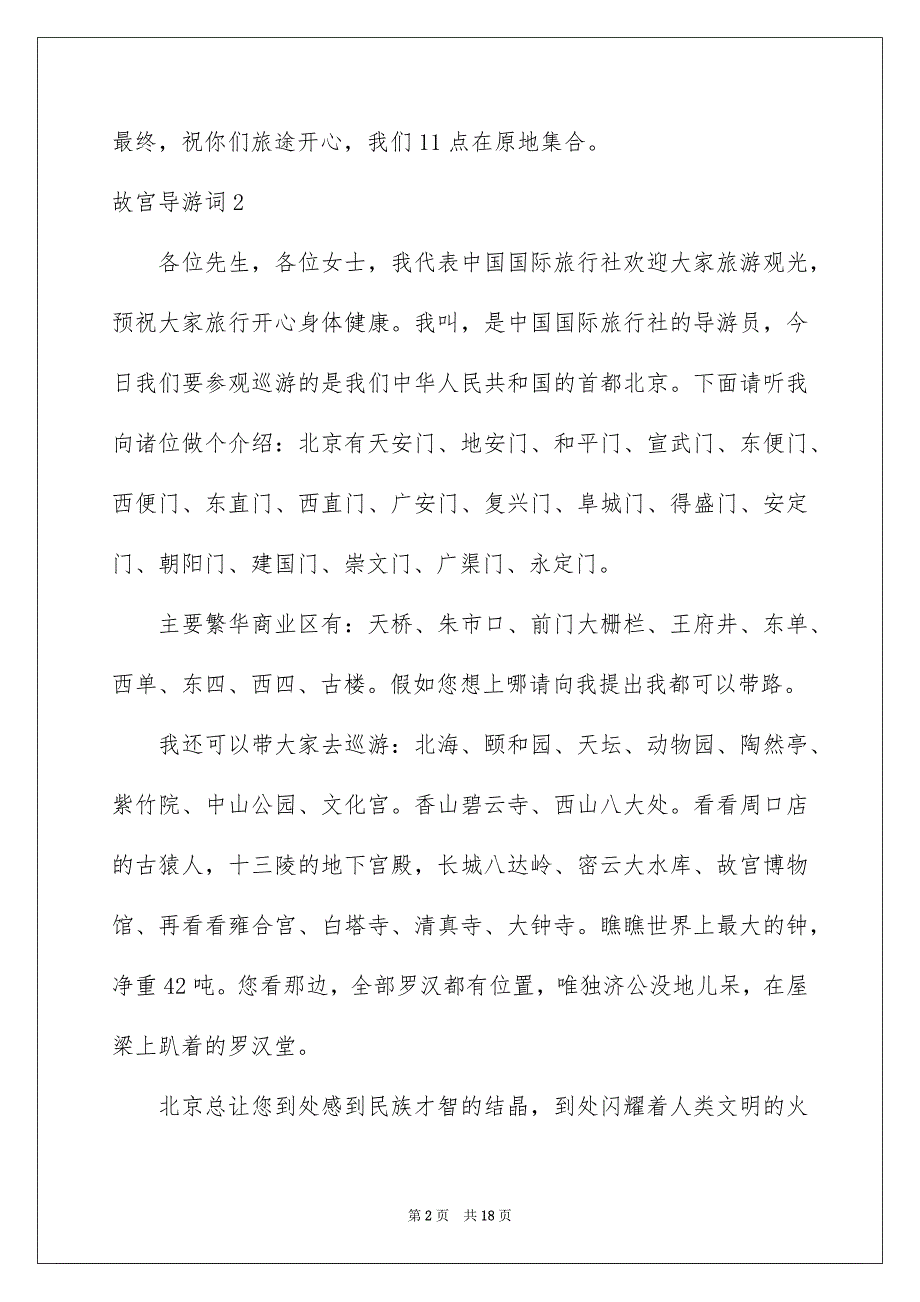 最终，祝你们旅途开心，我们11点在原地集合。
故宫导游词2
各位先生，各位女士，我代表中国国际旅行社欢迎大家旅游观光，
预祝大家旅行开心身体健康。我叫，是中国国际旅行社的导游员，今
日我们要参观巡游的是我们中华人民共和国的首都北京。下面请听我
向诸位做个介绍：北京有天安门、地安门、和平门、宣武门、东便门、
西便门、东直门、西直门、广安门、复兴门、阜城门、得盛门、安定
门、朝阳门、建国门、崇文门、广渠门、永定门。
主要繁华商业区有：天桥、朱市口、前门大栅栏、王府井、东单、
西单、东四、西四、古楼。假如您想上哪请向我提出我都可以带路。
我还可以带大家去巡游：北海、颐和园、天坛、动物园、陶然亭、
紫竹院、中山公园、文化宫。香山碧云寺、西山八大处。看看周口店
的古猿人，十三陵的地下宫殿，长城八达岭、密云大水库、故宫博物
馆、再看看雍合宫、白塔寺、清真寺、大钟寺。瞧瞧世界上最大的钟，
净重42吨。您看那边，全部罗汉都有位置，唯独济公没地儿呆，在屋
梁上趴着的罗汉堂。
北京总让您到处感到民族才智的结晶，到处闪耀着人类文明的火
第2页 共18页